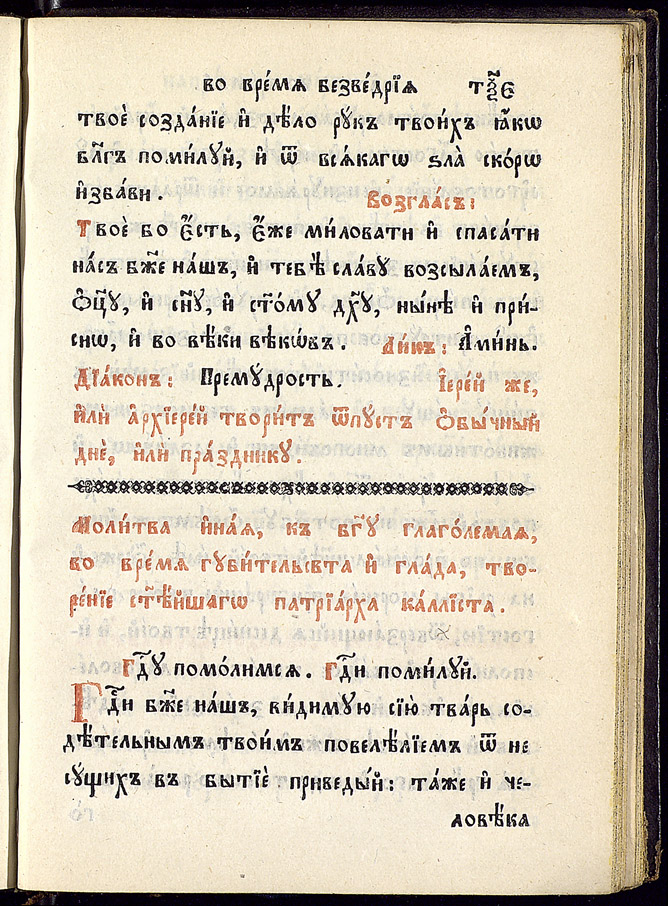 во вре́мѧ безве́дрїѧ т҃ѯє
твоѐ созда́нїе и҆ дѣ́ло рꙋ́къ твои́хъ ꙗ҆́кѡ
бл҃гъ поми́лꙋй, и҆ ѿ всѧ́кагѡ ѕла̀ ско́рѡ
и҆зба́ви.
Возгла́съ:
Твое́ бо є҆́сть, є҆́же ми́ловати и҆ спаса́ти
на́съ бж҃е на́шъ, и҆ тебѣ̀ сла́вꙋ возсыла́емъ,
ѻ҆ц҃ꙋ̀, и҆ сн҃ꙋ, и҆ ст҃о́мꙋ дх҃ꙋ, ны́нѣ и҆ при́-
снѡ, и҆ во вѣ́ки вѣкѡ́въ. Ли́къ: А҆ми́нь.
Дїа́конъ: Премꙋ́дрость. І҆ере́й же,
и҆лѝ а҆рхїере́й твори́тъ ѿпꙋ́стъ ѻ҆бы́чный
днѐ, и҆лѝ пра́здникꙋ.
Моли́тва и҆на́ѧ, къ бг҃ꙋ глаго́лемаѧ,
во вре́мѧ гꙋби́тельства и҆ гла́да, тво-
ре́нїе ст҃ѣ́йшагѡ патрїа́рха ка́ллїста.
Гдⷭ҇ꙋ помо́лимсѧ. Гдⷭ҇и поми́лꙋй.
Гдⷭ҇и бж҃е на́шъ, ви́димꙋю сїю̀ тва́рь со-
дѣ́тельнымъ твои́мъ повелѣ́нїемъ ѿ не
сꙋ́щихъ въ бытїѐ приведы́й: та́же и҆ че-
ловѣ́ка